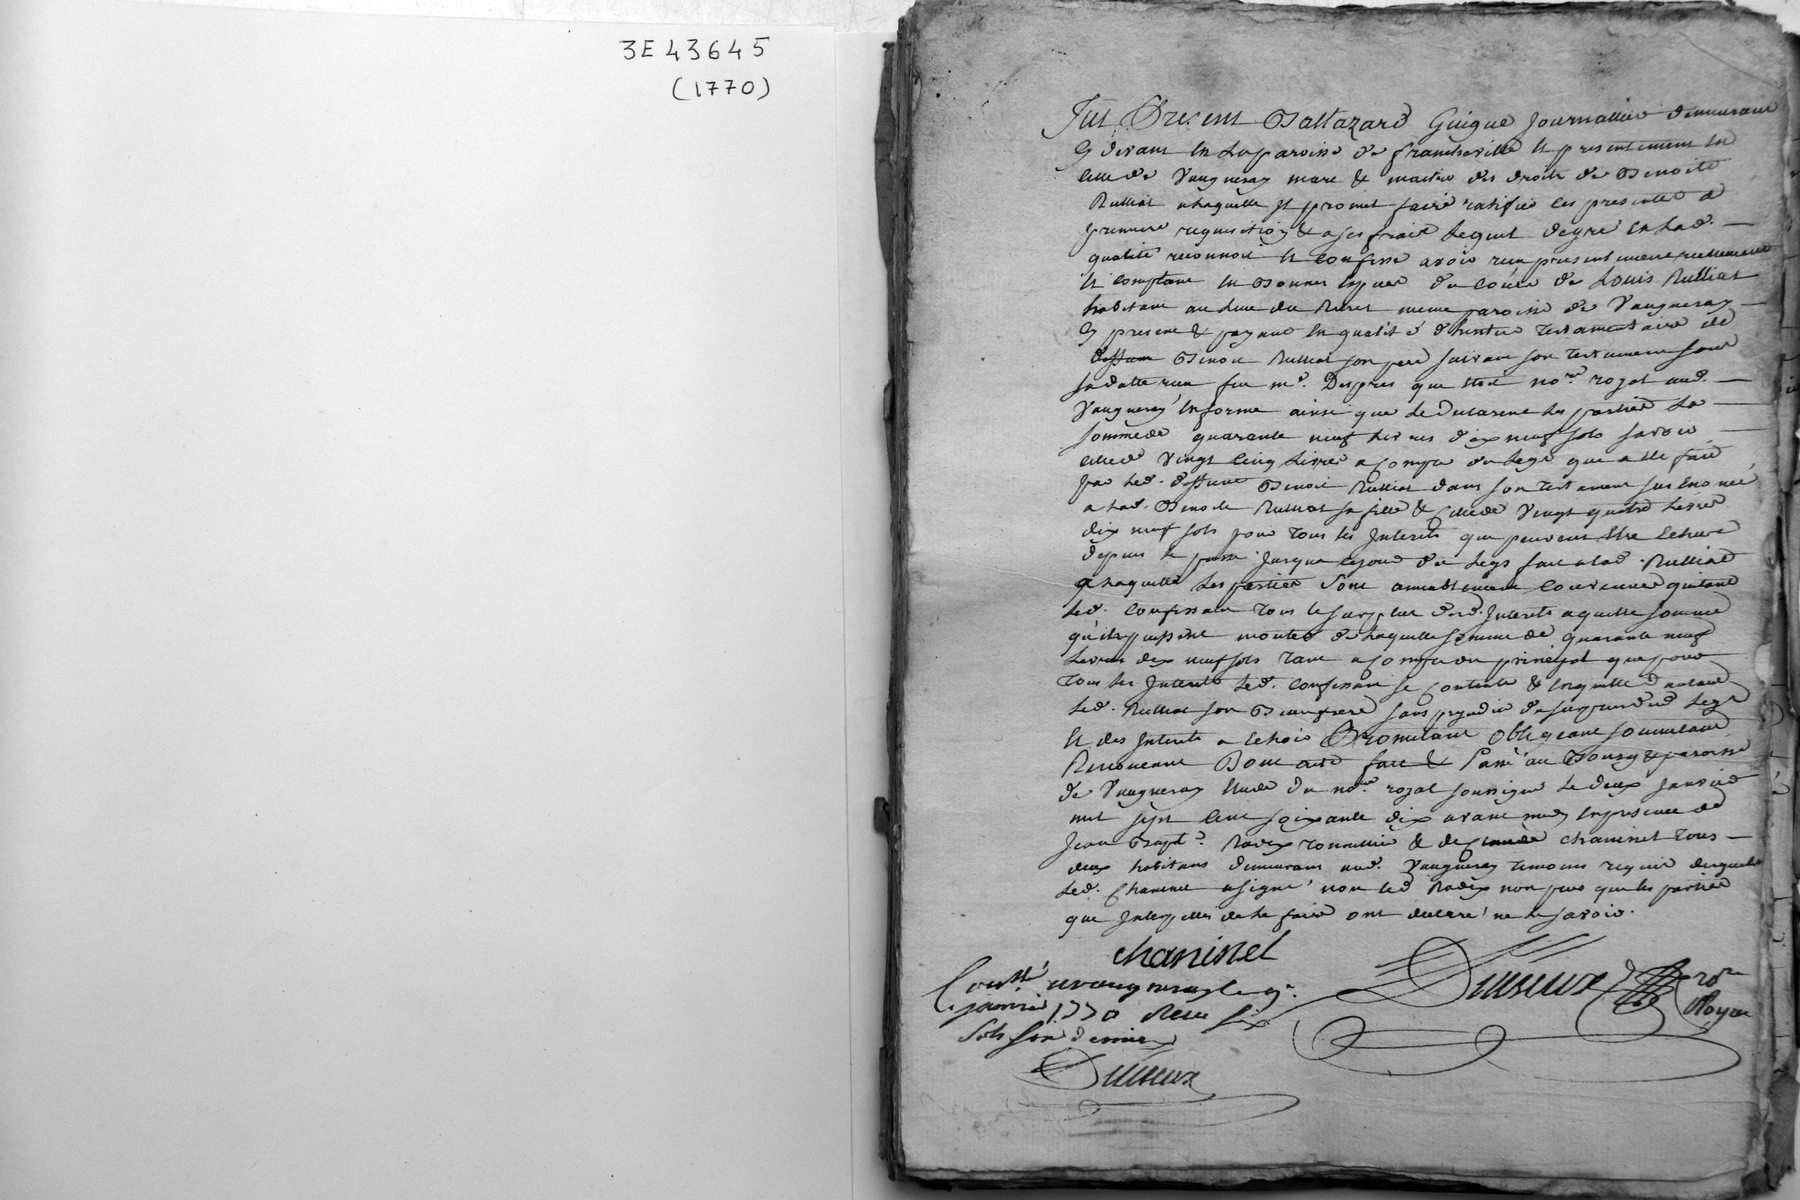 3E 43645
(1770)
Fut Present Baltazard Guigue Journallier demeurant
cy devant en la paroisse de francheville et presentement en
celle de Vaugneray mare & maitre des droits de Benoite
Rulliat a laquelle il promet faire ratifier ces presentes a
premiere requisition & a ses frais lequel degré en lad.
qualité reconnoit et confesse avoir recu presentement reellement
et comptant en bonnes espece de cours de Louis Rulliat
habitant au lieu du meme paroisse de Vaugneray
cy present & payant en qualité d'heritier testamentaire de
deffunt Benoit Rulliat son pere suivant son testament sous
sa datte recu feu me. Despres que etoit nore. royal aud.
Vaugneray en forme ainsi que le declarent les parties la
somme de quarante neuf livres dix neuf sols savoir
celle de Vingt cinq livres a compte du legs que a ete fait
par led. deffunt Benoit Rulliat dans son testament sus enoncé
a lad. Benoite Rulliat sa fille & celle de Vingt quatre livres
dix neuf sols pour tous les Interets que peuvent etre echus
depuis le passé jusqua ce jour du legs fait a lad. Rulliat
a laquelle les parties sont amiablement convenue quitant
led. confessant tous le surplus desd. Interets a quelle somme
qu'ils puissent monter de laquelle somme de quarante neuf
livres dix neuf sols tant a compte du principal que pour
tous les Interets led. confessant se contente & en quitte d'autant
led. Rulliat son Beaufrere sans prejudice du surplus dud. legs
et des Interets a echoir Promettant Obligeant soumettant
Renoncant Dont acte fait & Passé au Bourg & paroisse
de Vaugneray etude du nore. royal soussigné le deux janvier
mil sept cent soixante dix avant midy en presence de
Jean Bapt. Radix tonnellier & de Claude chaninel tous
deux habitans demeurans aud. Vaugneray temoins requis desquels
led. Chaninel a signé non led. Radix non plus que les parties
que Interpellés de le faire ont declaré ne le savoir.
chaninel
Coll. a vaugneray le
janvier 1770 Recu six
sols six deniers
royal